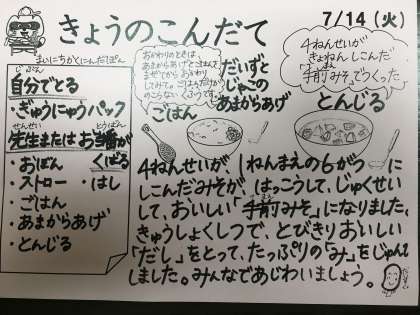 きょうのこんだて
7/14(火)
まいにちかくにんだぽん
じぶん
自分でとる
・ぎゅうにゅうパック
せんせい
とうばん
先生またはお当番が
くばる
・おぼん
・ストロー
・はし
・ごはん
・あまからあげ
・とんじる
おかわりのときは、
あまからあげとごはんを
まぜてから
ごはん
だいずと
じゃこの
あまからあげ
4ねんせいが
きょねんしこんだ
「手前みそ」でつくった
とんじる
4ねんせいが、1ねんまえの6がつに
しこんだみそが、はっこうして、じゅくせい
して、おいしい「手前みそ」になりました。
きゅうしょくしつで、とびきりおいしい
「だし」をとって、たっぷりの「み」をじゅんび
しました。みんなであじわいましょう。